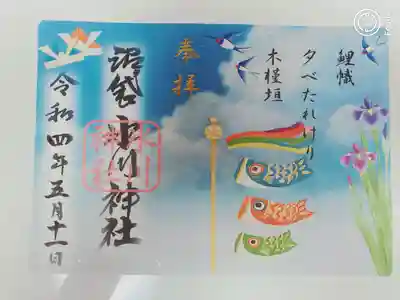 鯉幟
夕べたれけり
木槿垣
奉拝
沼袋氷川神社
令和四年五月十一日